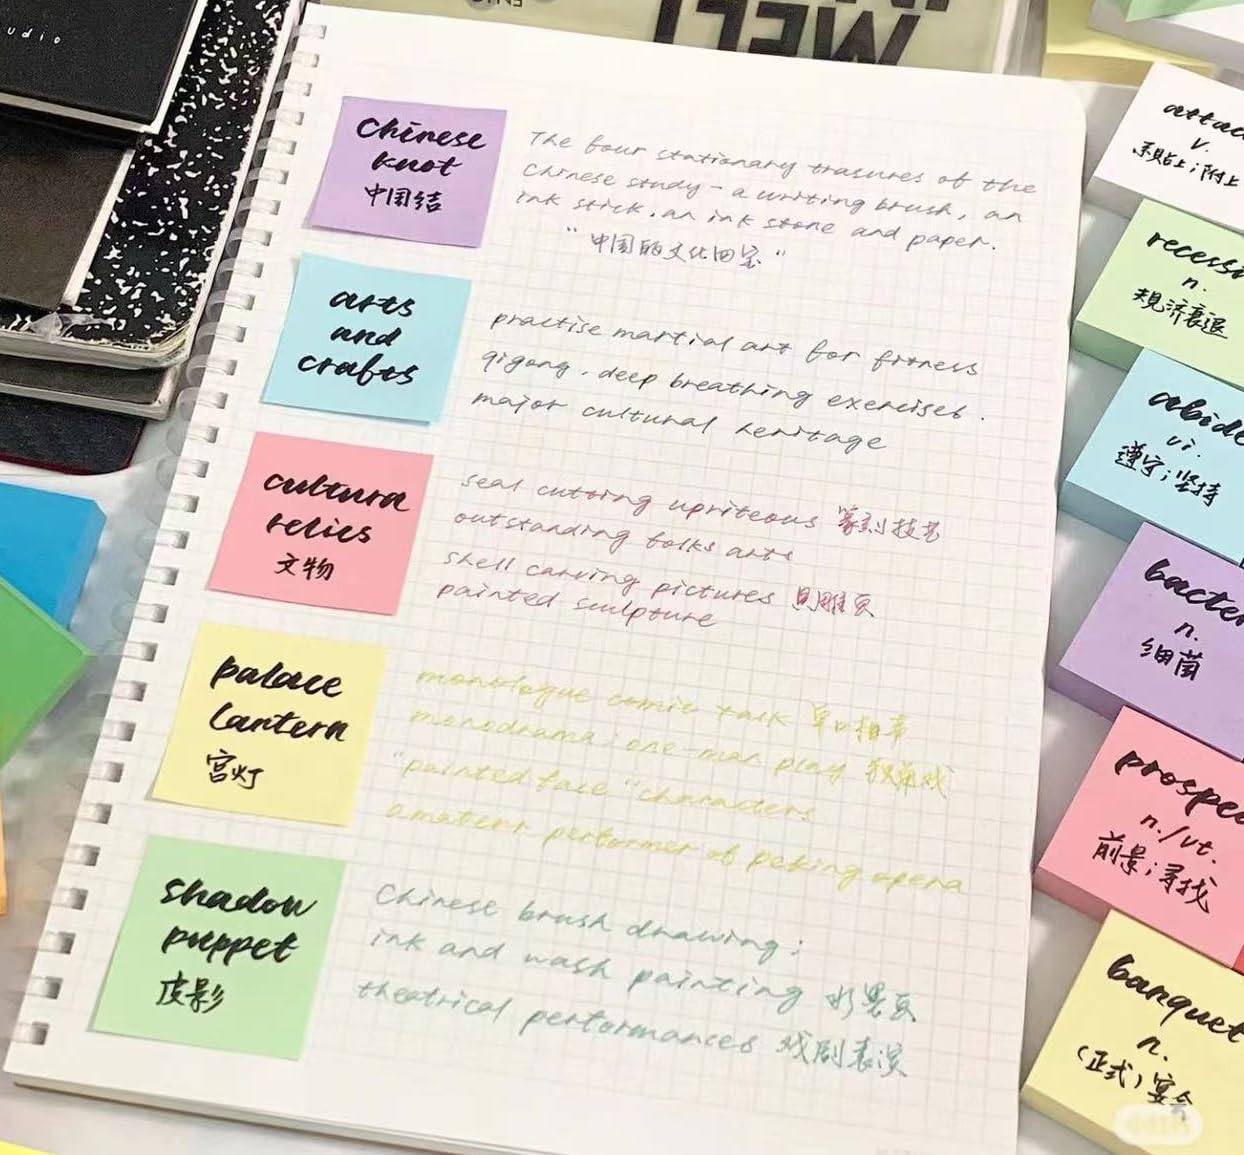 udio
Chinese
knot
中国结
The four stationary trasures of the
Chinese study - a writing brush, an
ink stick, an ink stone and paper.
"中国的文化四宝"
arts
and
crafts
practise martial art for fitness
qigong, deep breathing exercises.
major cultural heritage
cultura
relics
文物
seal cutting upriteous 篆刻技艺
outstanding folks arts
shell carving pictures 贝雕页
painted sculpture
palace
lantern
宫灯
monologue comic talk 单口相声
monodrama: one-man play 独角戏
"painted face" characters
amateur performer of peking opera
shadow
puppet
皮影
Chinese brush drawing;
ink and wash painting 水墨页
theatrical performances 戏剧表演
attac
v.
系贴上；附上
recessi
n.
规济衰退
abide
vi.
遵守；坚持
bacter
n.
细菌
prospec
n./vt.
前景；寻找
banquet
n.
(正式)宴会